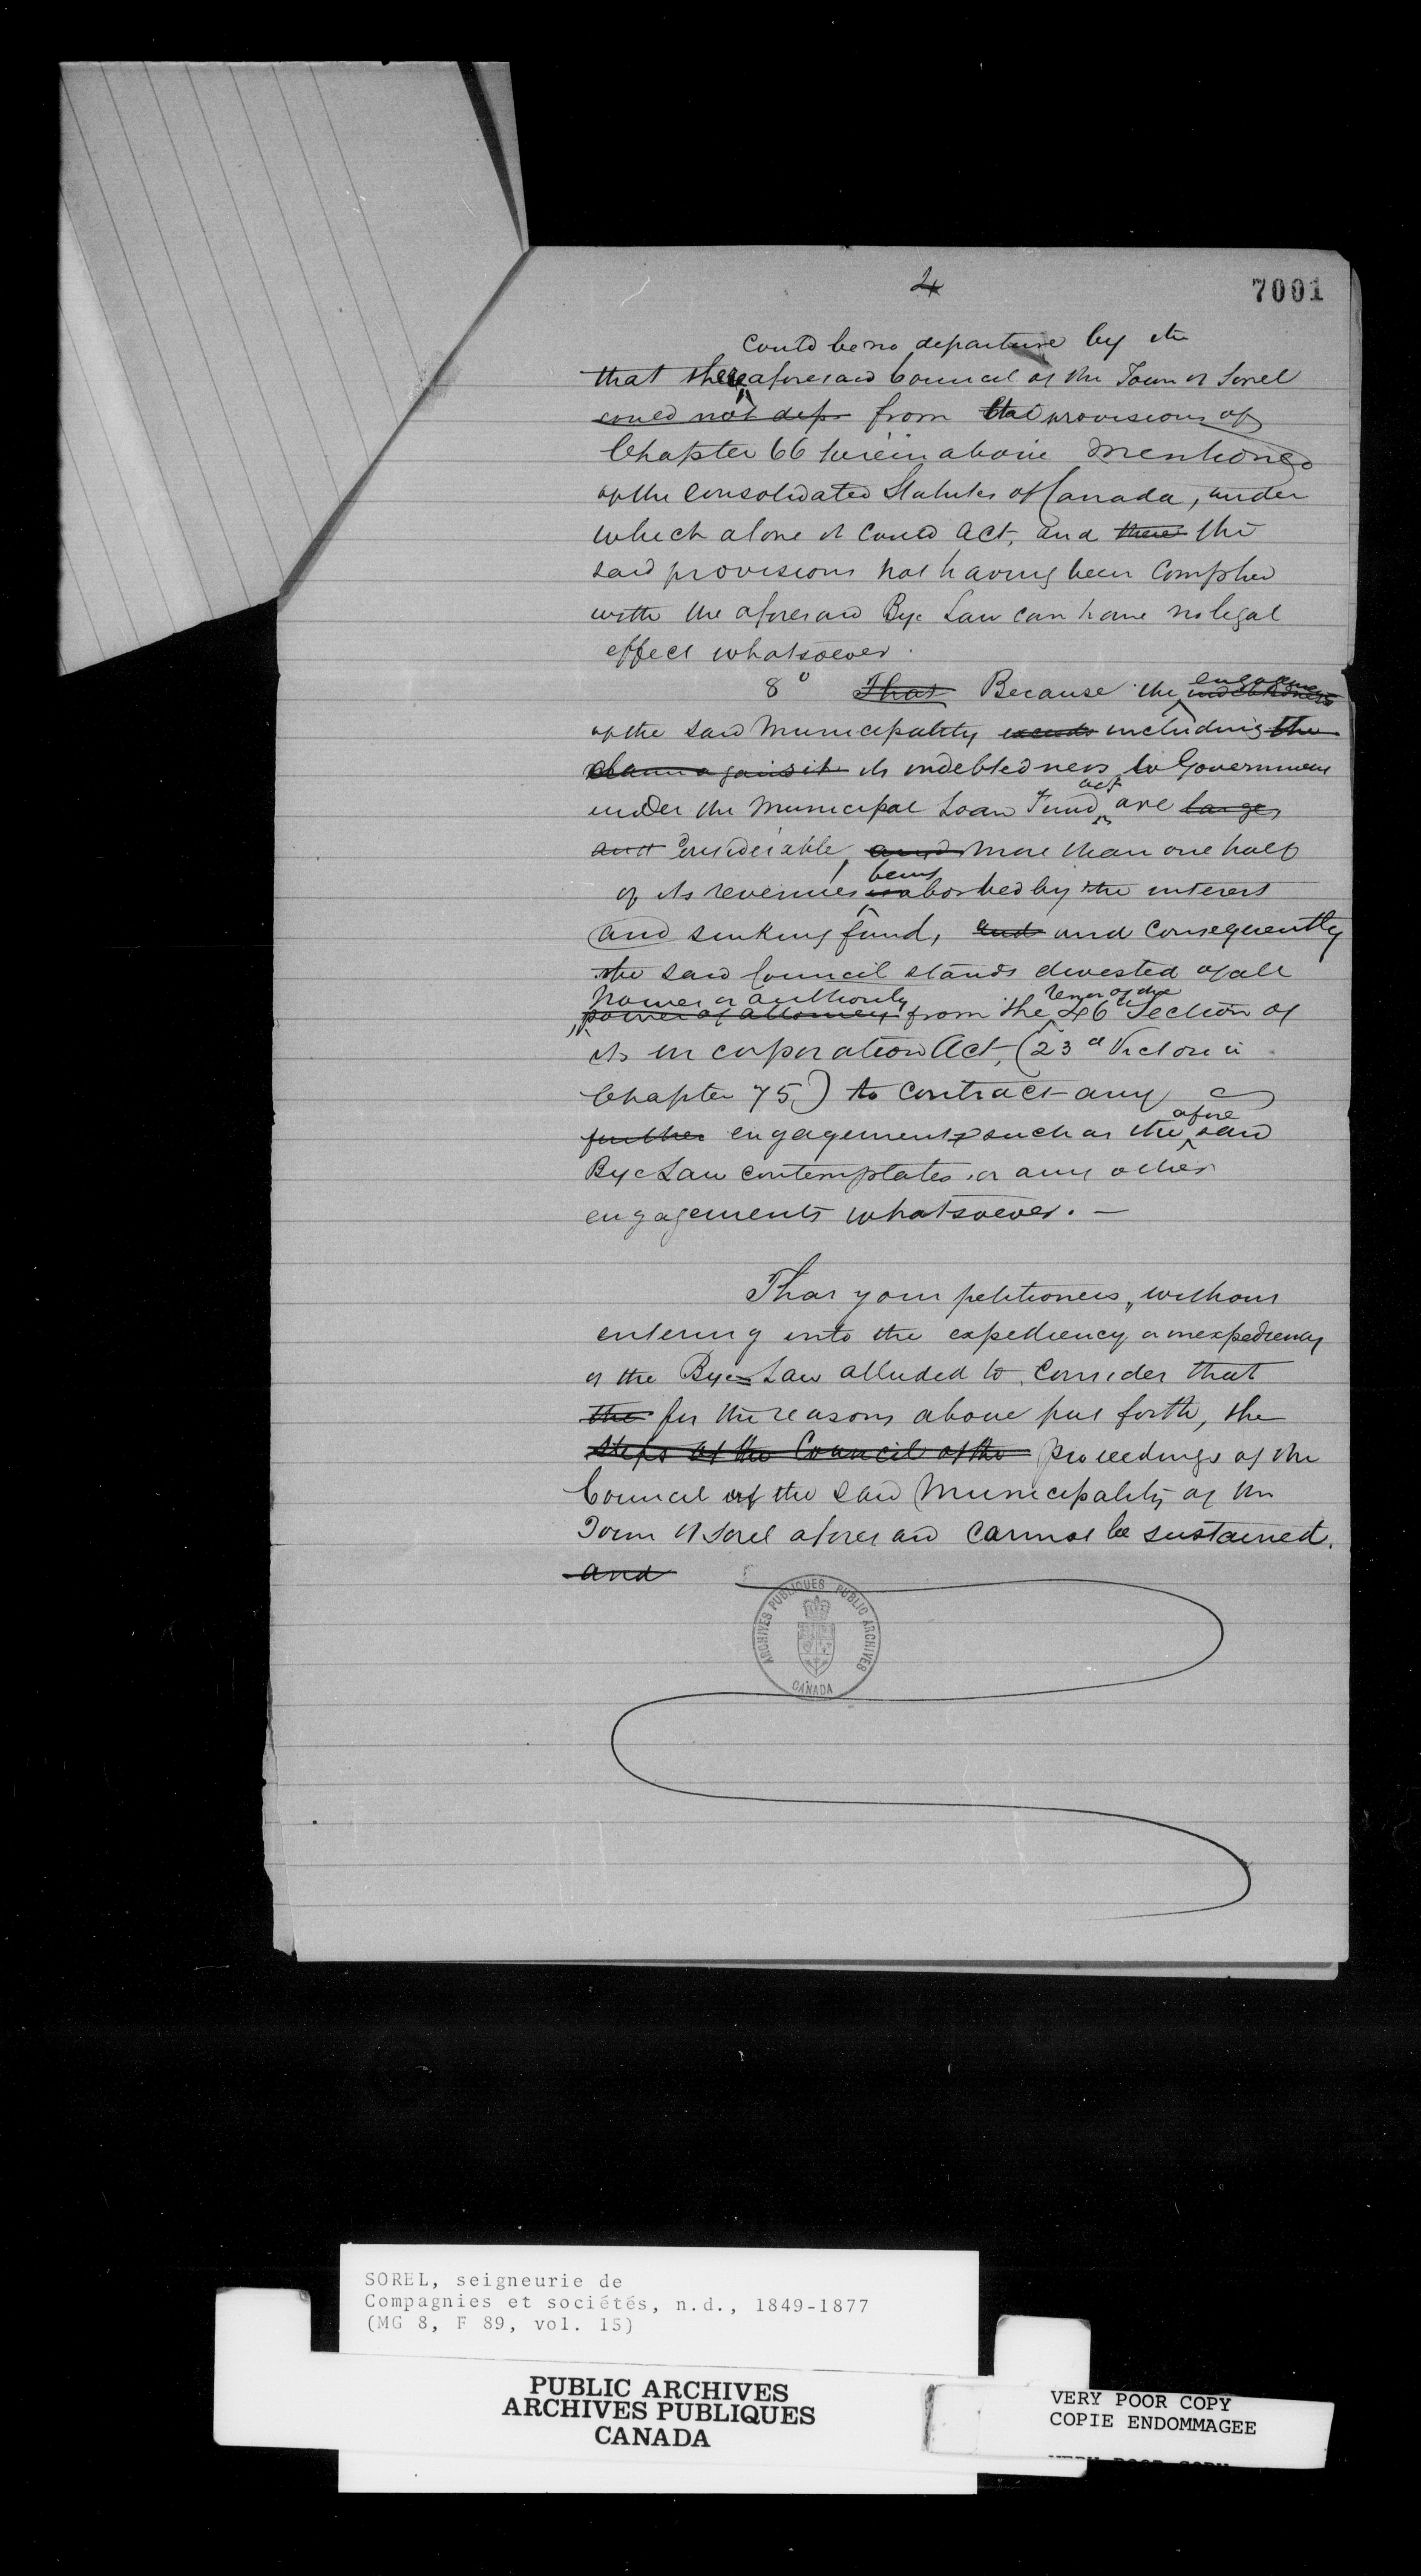 4
7001
could be no departure by the
that there aforesaid Council of the Town of Sorel
could not dep from that provisions of
Chapter 66 herein above mentioned
of the Consolidated Statutes of Canada, under
which alone it could act, and there the
said provisions not having been complied
with the aforesaid Bye Law can have no legal
effect whatsoever.
8° That Because the engagements indebtedness
of the said Municipality exceeds including the
claim against it its indebtedness to Government
under the Municipal Loan Fund act are large,
and considerable, and more than one half
of its revenues being is absorbed by the interest
and sinking fund, and and consequently
the said Council stands divested of all
power or authority
power of attorney from the tenor of the 46th Section of
its incorporation Act, (23d Victoria
Chapter 75) to contract any
further engagements such as the afore said
Bye Law contemplates or any other
engagements whatsoever. —
That your petitioners, without
entering into the expediency or inexpediency
of the Bye=Law alluded to, consider that
the for the reasons above put forth, the
steps of the Council of the proceedings of the
Council of the said Municipality of the
Town of Sorel aforesaid cannot be sustained.
and
ARCHIVES PUBLIQUES PUBLIC ARCHIVES
CANADA
SOREL, seigneurie de
Compagnies et sociétés, n.d., 1849-1877
(MG 8, F 89, vol. 15)
PUBLIC ARCHIVES
ARCHIVES PUBLIQUES
CANADA
VERY POOR COPY
COPIE ENDOMMAGEE
VERY POOR COPY